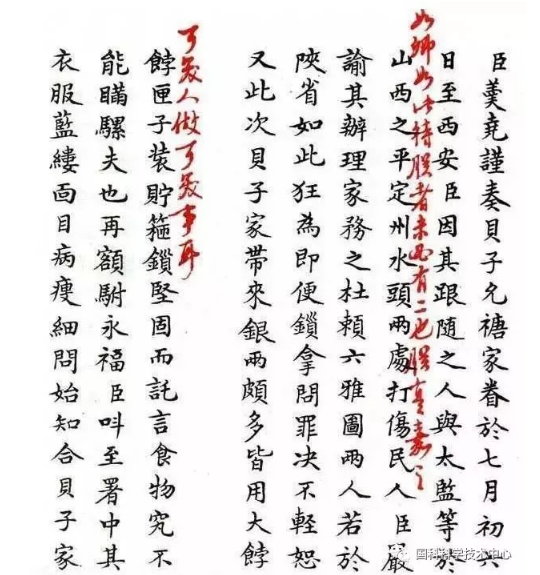 臣羹堯謹奏貝子允禟家眷於七月初六
日至西安臣因其跟隨之人與太監等於
如卿如此待朕者未必有二也朕真嘉之
山西之平定州水頭兩處打傷民人臣嚴
諭其辦理家務之杜賴六雅圖兩人若於
陝省如此狂為即便鎖拿問罪決不輕恕
又此次貝子家帶來銀兩頗多皆用大餑
可笑人做可笑事耳
餑匣子裝貯箍鎖堅固而託言食物究不
能瞞騾夫也再額駙永福臣呌至署中其
衣服藍縷面目病瘦細問始知合貝子家
国科科学技术中心